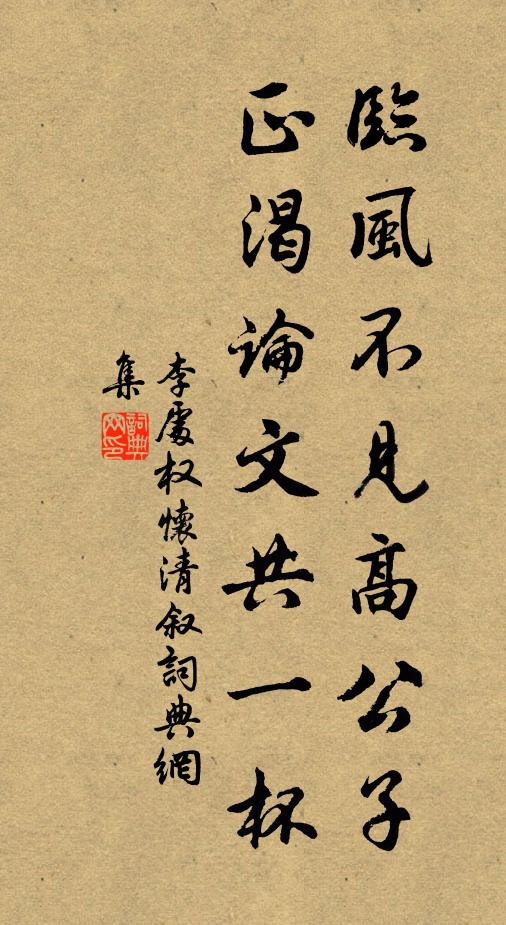 臨風不見高公子
正渴論文共一杯
李處权懷清叙詞典網
集
詞典网印